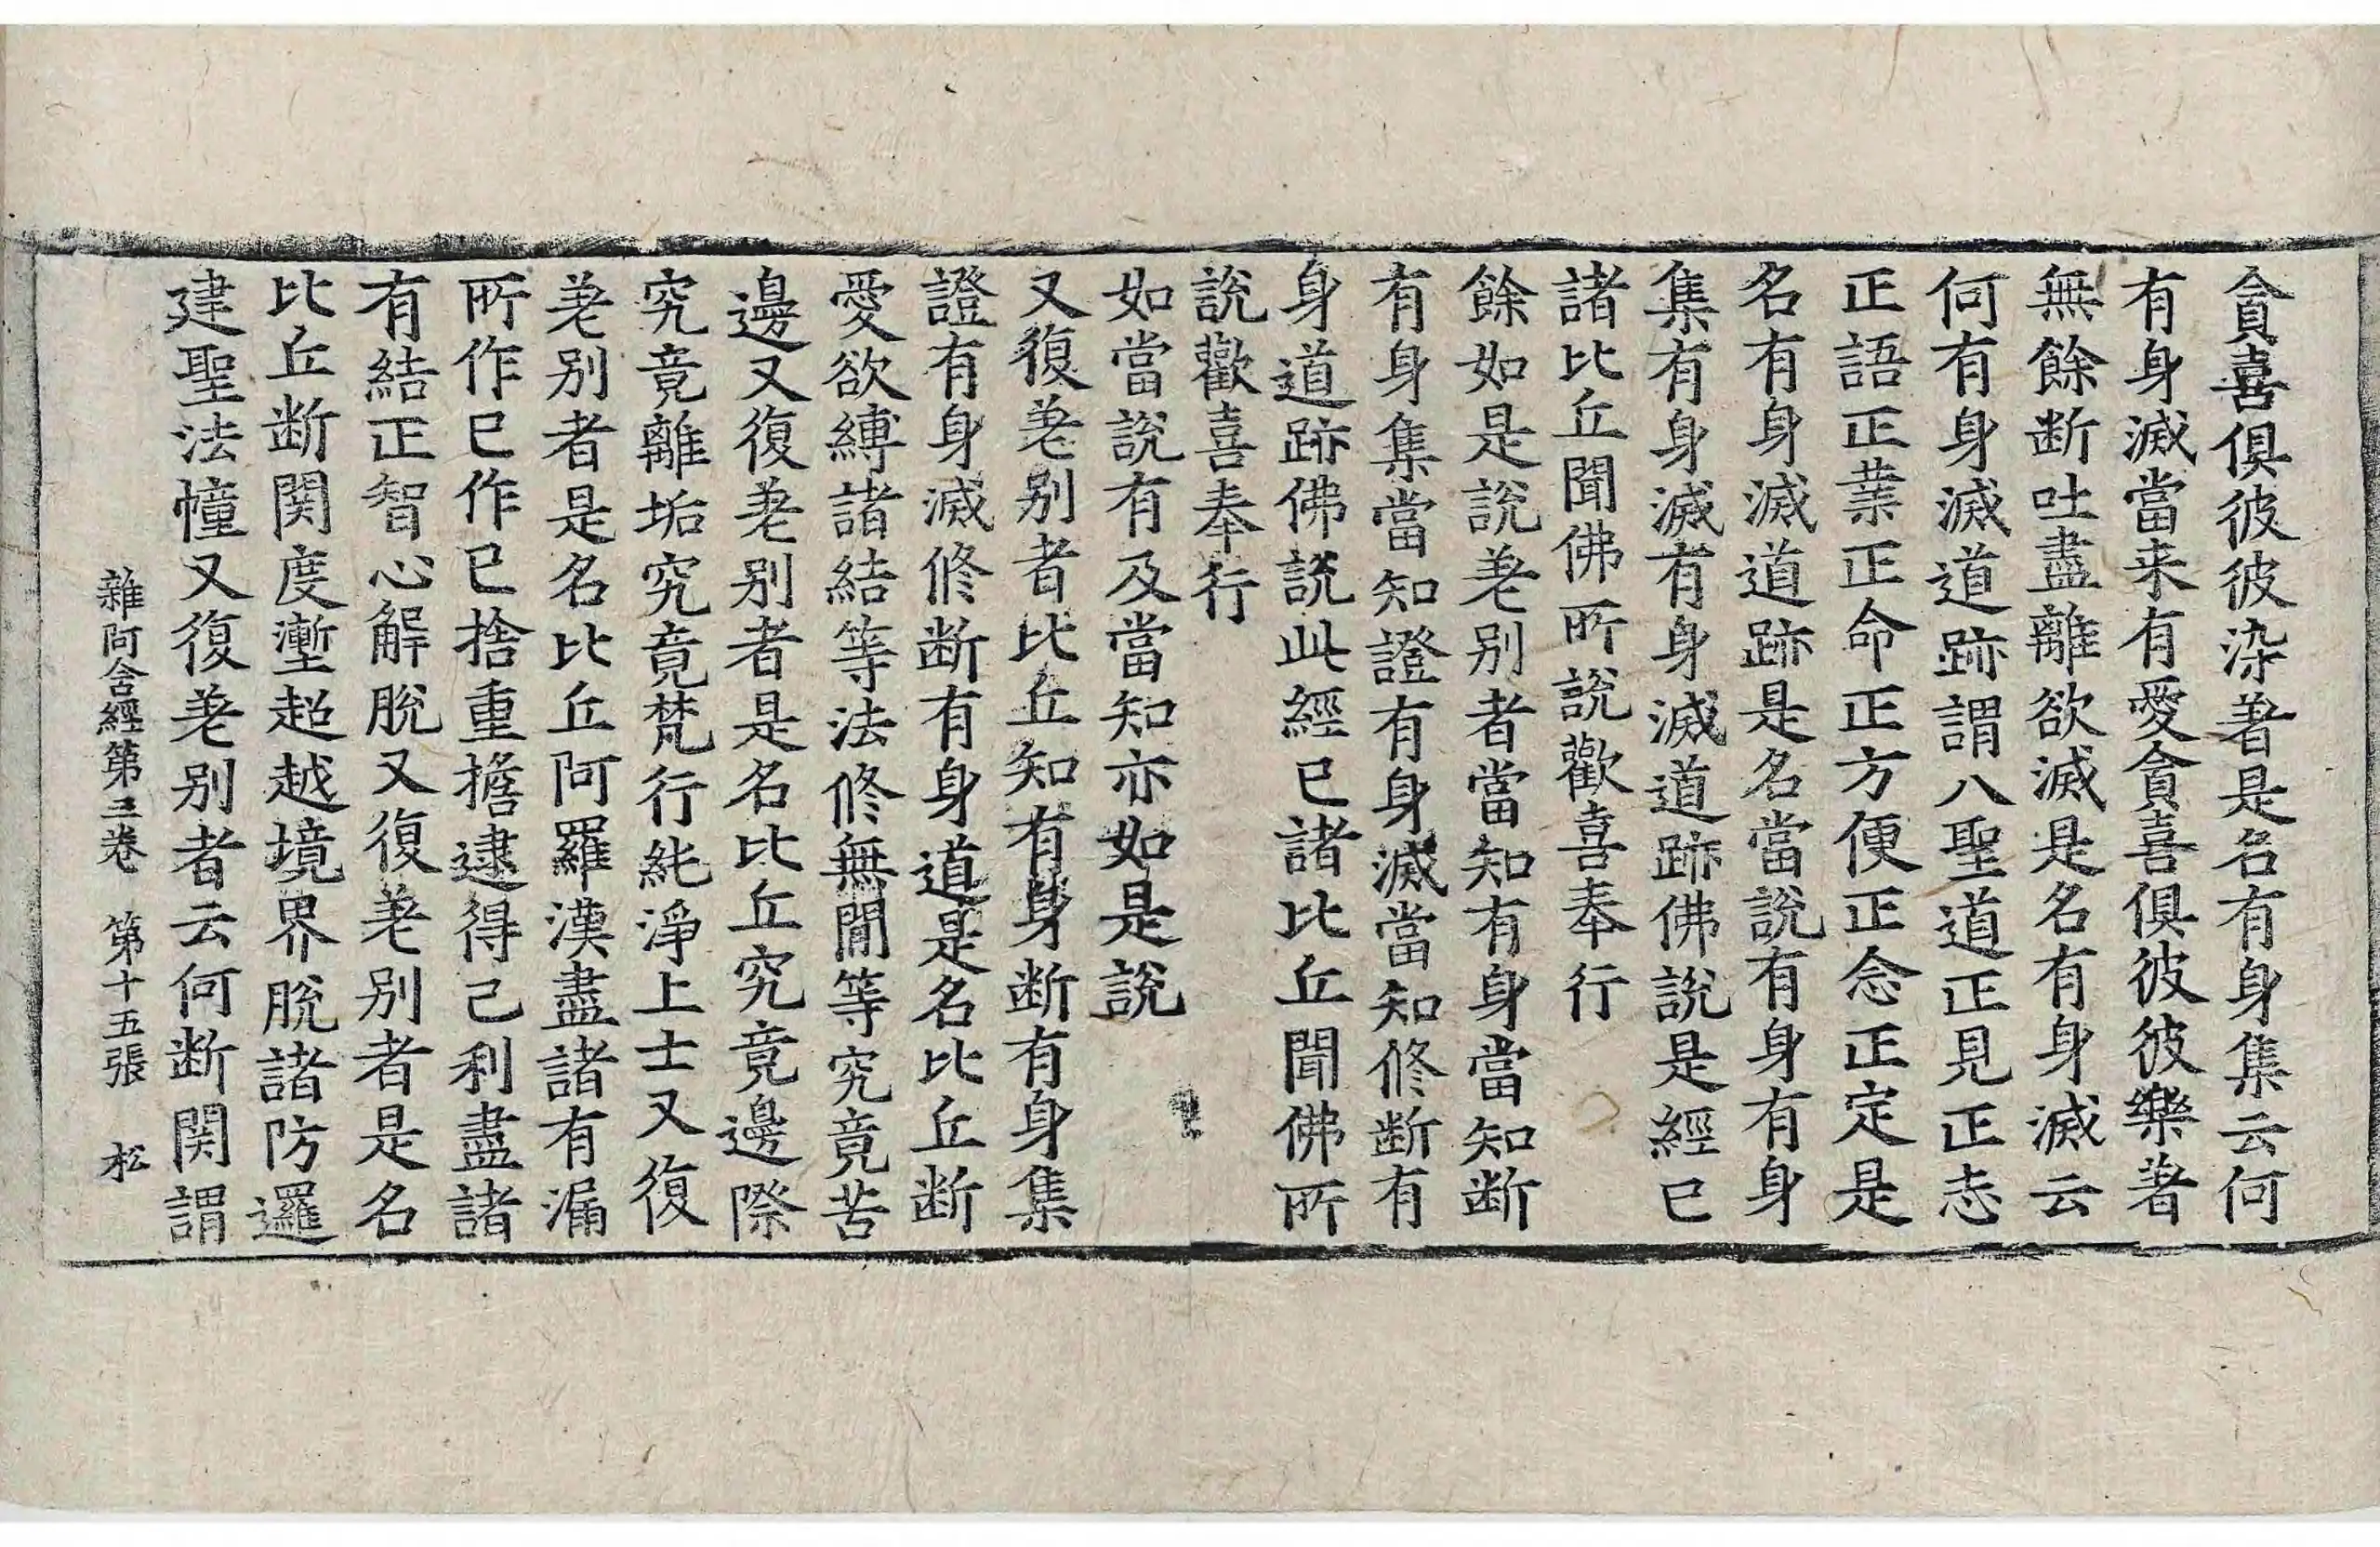 貪喜俱彼彼染著是名有身集云何
有身滅當来有愛貪喜俱彼彼樂著
無餘断吐盡離欲滅是名有身滅云
何有身滅道跡謂八聖道正見正志
正語正業正命正方便正念正定是
名有身滅道跡是名當說有身有身
集有身滅有身滅道跡佛說是經已
諸比丘聞佛所說歡喜奉行
餘如是說差别者當知有身當知断
有身集當知證有身滅當知修断有
身道跡佛說此經已諸比丘聞佛所
說歡喜奉行
如當說有及當知亦如是說
又復差别者比丘知有身断有身集
證有身滅修断有身道是名比丘断
愛欲縛諸結等法修無閒等究竟苦
邊又復差别者是名比丘究竟邊際
究竟離垢究竟梵行純淨上士又復
差别者是名比丘阿羅漢盡諸有漏
所作已作已捨重擔逮得己利盡諸
有結正智心解脫又復差别者是名
比丘断関度塹超越境界脫諸防邏
建聖法幢又復差别者云何断関謂
雜阿含經第三卷 第十五張 松